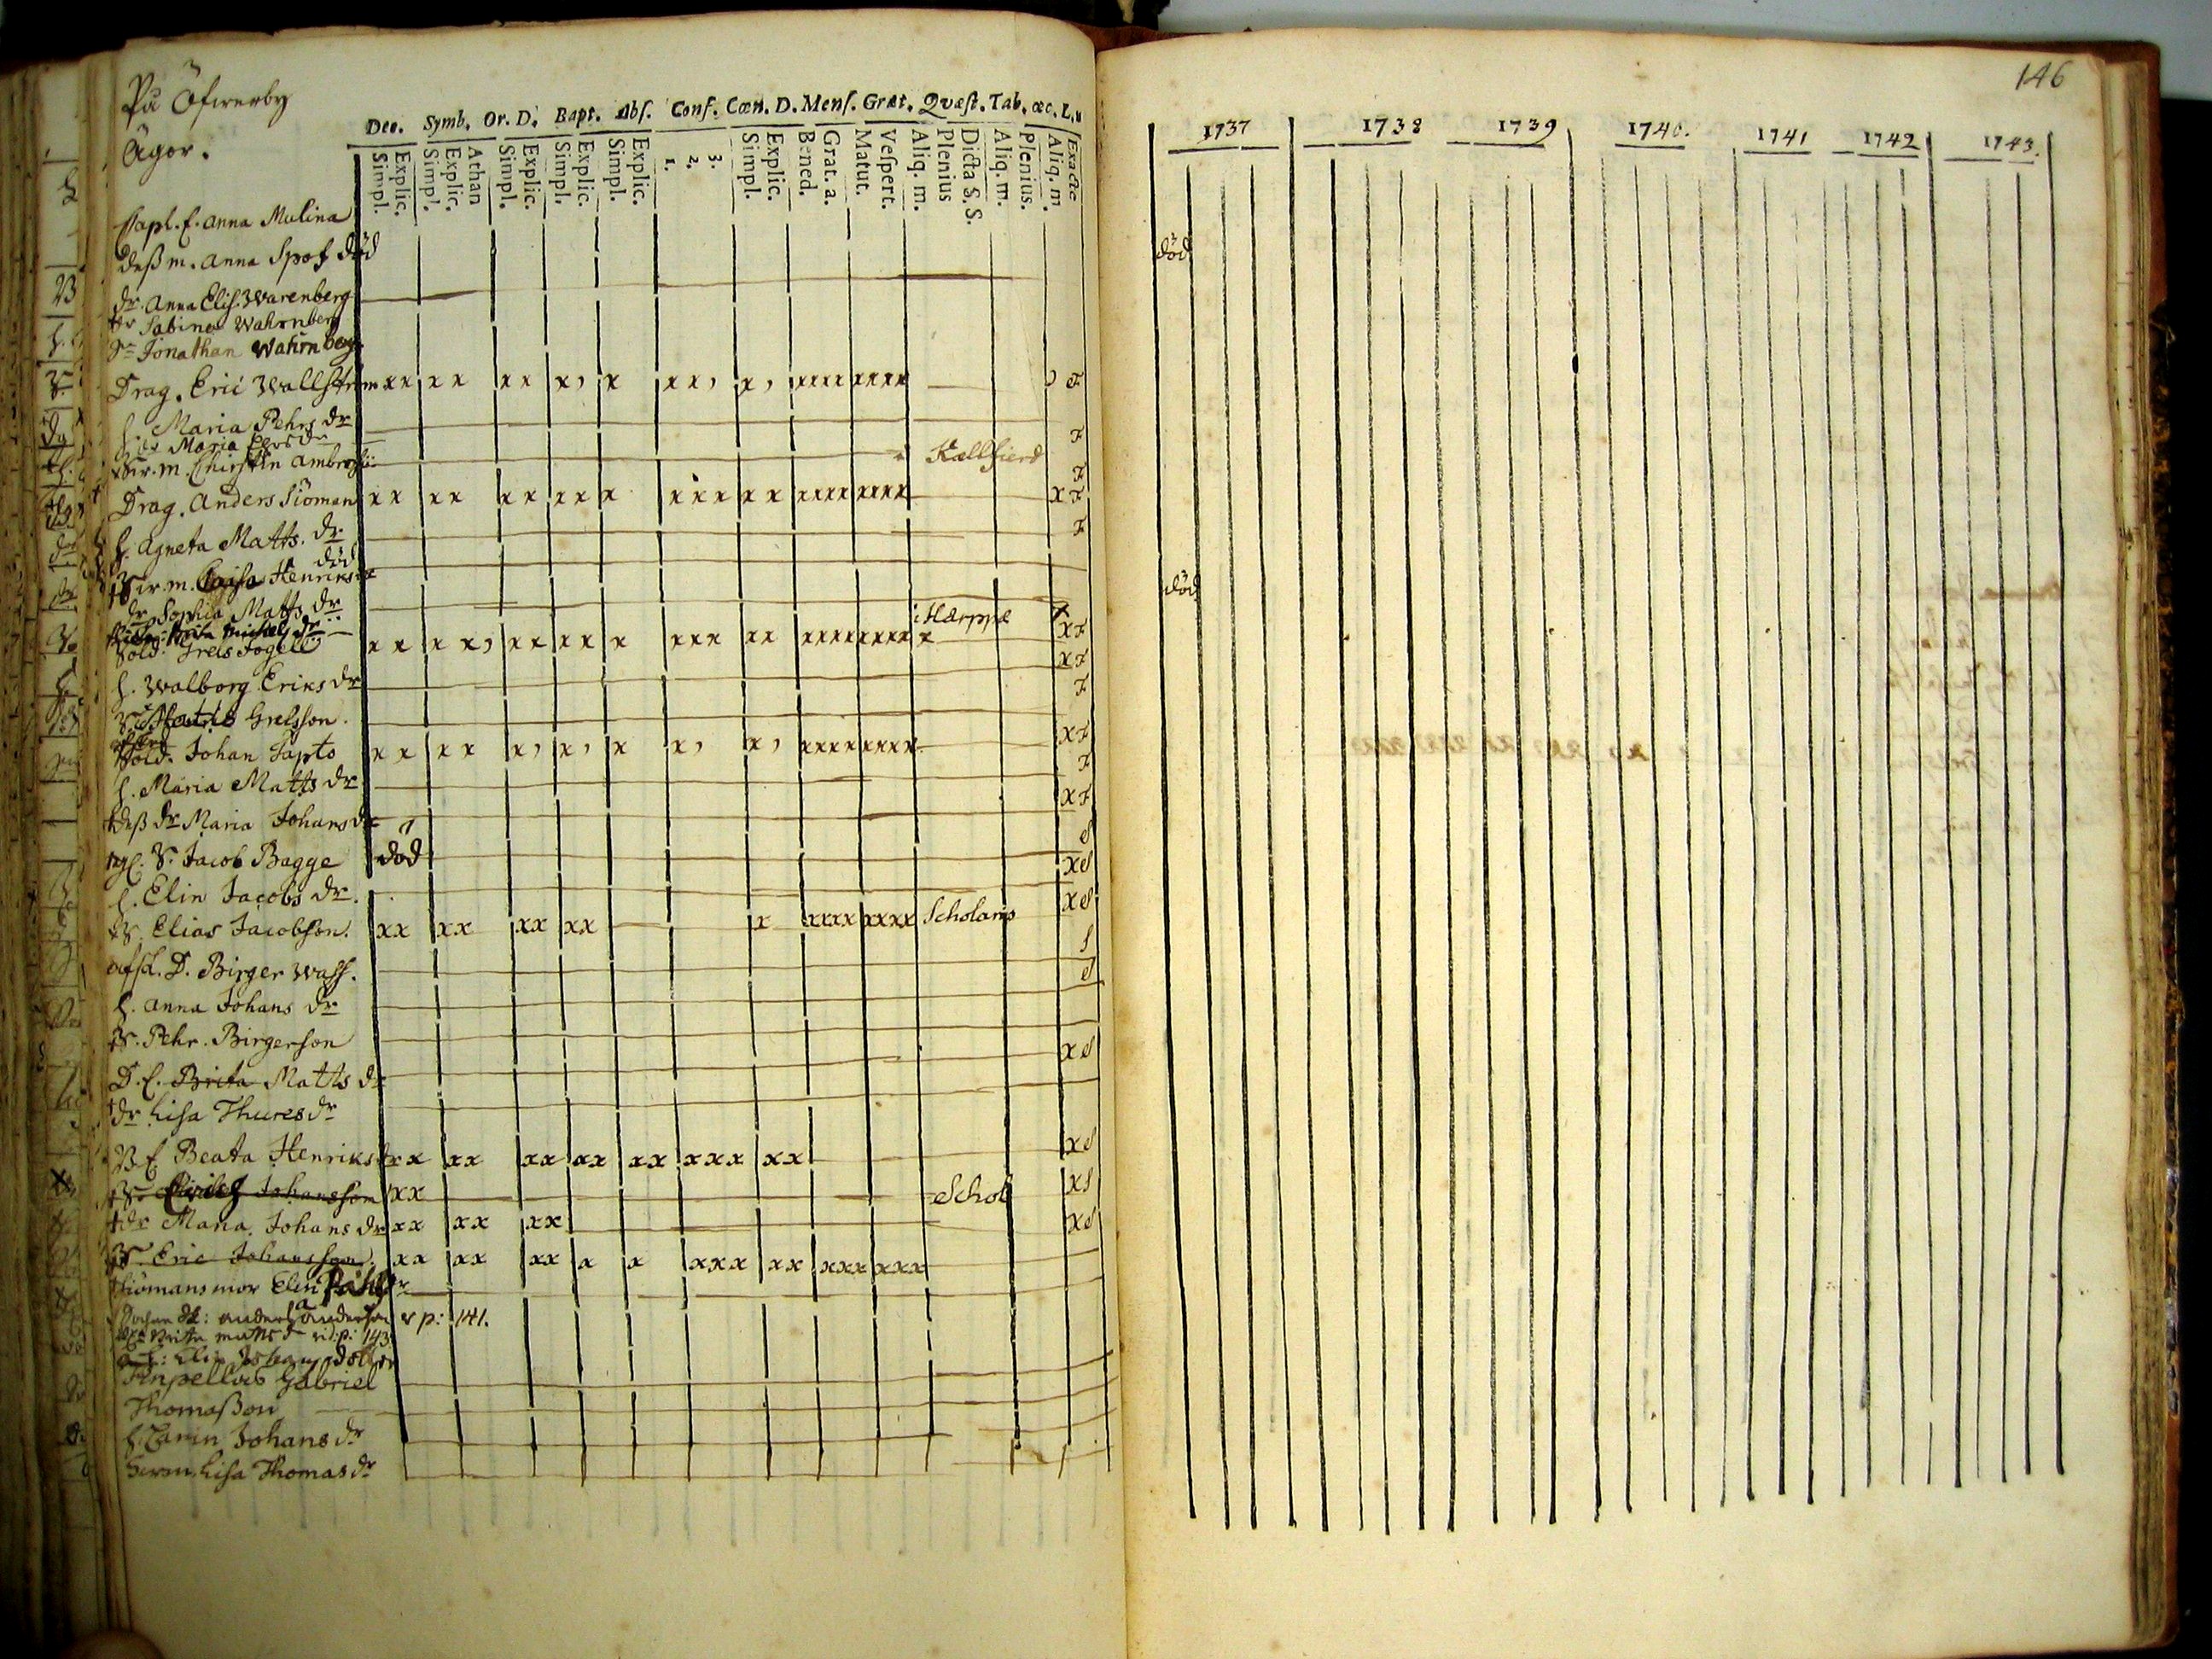 På Öfwerby
Ägor.
Dec. Symb. Or. D. Bapt. Abs. Conf. Cœn. D. Mens. Græt. Qvæst. Tab. œc. L.
Simpl. Explic. Simpl. Explic. Athan Simpl. Explic. Simpl. Explic. Simpl. Explic. 1. 2. 3. Simpl. Explic. Bened. Grat. a. Matut. Vespert. Aliq. m. Plenius Dicta S. S. Aliq. m. Plenius. Aliq. m. Exacte
Capl. E. Anna Mulina
deß m. Anna Spof död
dr. Anna Elis. Warenberg
dr Sabina Wahrnberg
Jonathan Wahrnberg
Drag. Eric Wallström xx xx xx x, x xx, x, xxxx xxxx , F
h. Maria Pehrs dr F
Maria Ersdr
Sw. m. Chirstin Ambrosii Kællfierd F
Drag. Anders Siöman xx xx xx xx x xxx xx xxxx xxxx x F
h. Agneta Matts. dr F
död
Sw. m. Caisa Henriks
dr Sophia Matts dr i Hærppe x
Sold. Grels Fogel xx xx, xx xx x xxx xx xxxx xxxx x xF
h. Walborg Eriks dr xF
Grelsson. F
Sold. Johan Tapto xx xx x, x, x x, x, xxxx xxxx xF
h. Maria Matts dr F
deß dr Maria Johans dr xF
S. Jacob Bagge död S
h. Elin Jacobs dr. xS
S. Elias Jacobson. xx xx xx xx x xxxx xxxx Scholaris xS
afsk. D. Birger Wass. S
h. Anna Johans dr S
S. Pehr. Birgerson
D. E. Brita Matts dr xS
dr Lisa Thures dr
B E Beata Henriks dr xx xx xx xx xx xxx xx xS
Johansson xx Schol xS
dr Maria Johans dr xx xx xx xS
S. Eric Johansson xx xx xx x x xxx xx xxx xxx
Siömans mor Elin Påhls dr
Anders Anderson v p: 141.
Brita Matts dr vid: p: 143
Elin Johans dotter
Inpellvis Gabriel
Thomaßon
h. Carin Johans dr
Swm. Lisa Thomas dr
146
1737 1738 1739 1740. 1741 1742 1743.
död
död